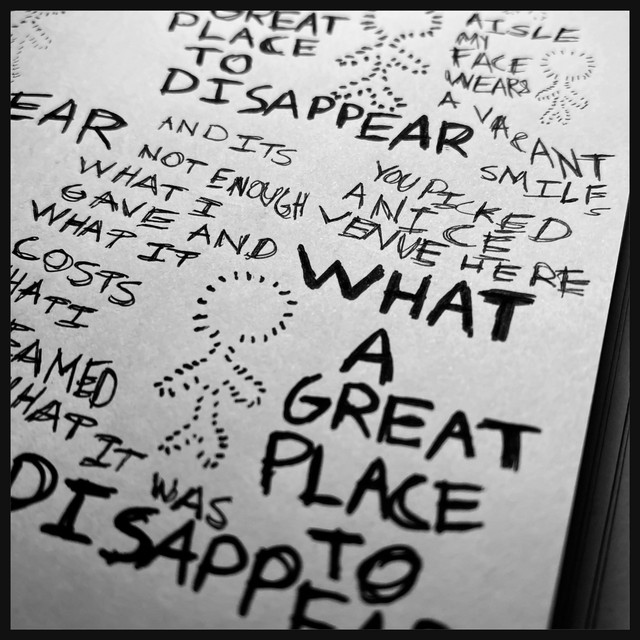 GREAT
PLACE
TO
DISAPPEAR
AISLE
MY
FACE
WEARS
A VACANT
SMILE
EAR
AND ITS
NOT ENOUGH
WHAT I
GAVE AND
WHAT IT
COSTS
WHAT I
EAMED
WHAT IT
WAS
YOU PICKED
A NICE
VENUE HERE
WHAT
A
GREAT
PLACE
TO
DISAPPEAR